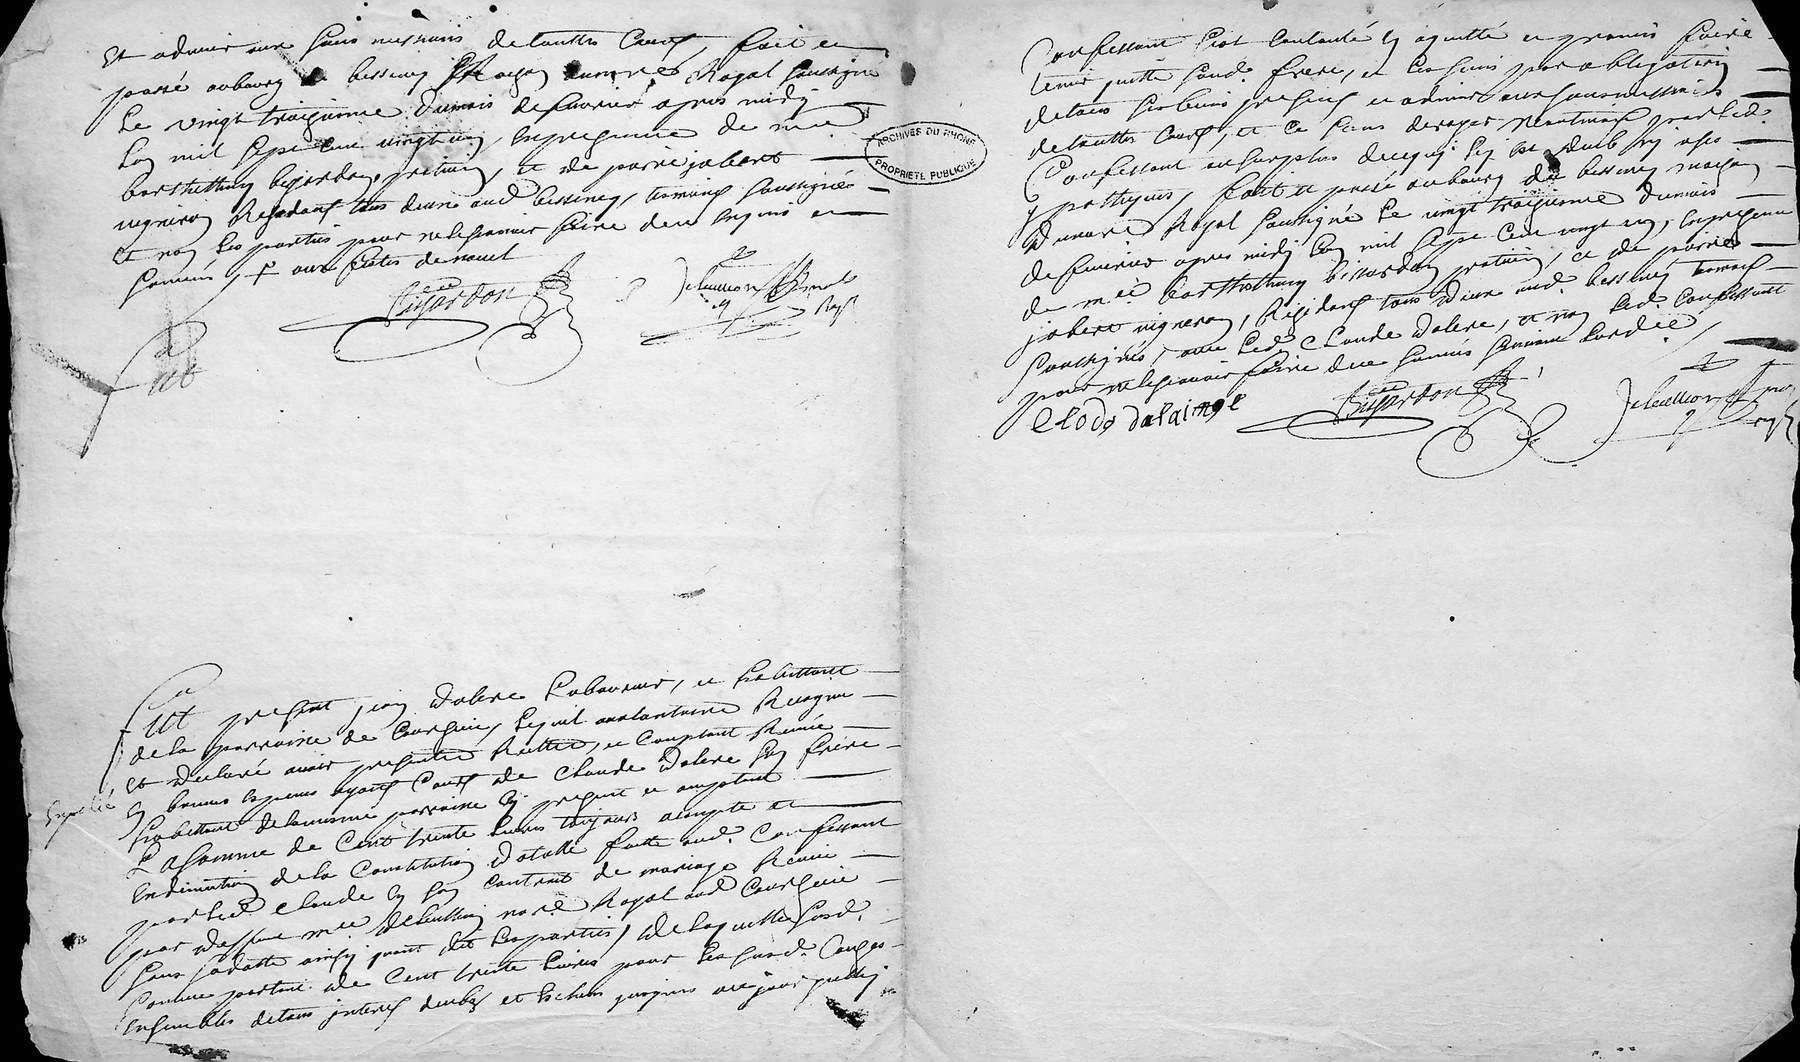 et admis aux soumissions de touttes Cours, fait et
passé au bourg de bessenay maison du no.re Royal soussigné
Le vingt troizieme du mois de feuvrier apres midy
Lan mil sept cent vingt un, en presence de m.e
barthellemy bizardon, praticien, et de pierre jobert
vigneron Residants tous deux aud bessenay, temoins soussignés
et non les parties pour ne le sçavoir faire de ce enquis et
sommés
Bizardon
Delaullion
Rayl
fut
fut present jean dalere Laboureur, et habittant
de la parroisse de Courzieu, Lequel volontairement Recognu
et declaré avoir presentement Reellement, et Comptant Receu
en bonnes especes ayant Cours de Claude dalere son frere
habittant de la mesme parroisse icy present et acceptant
La somme de Cent trente Livres toujours acompte et
en diminution de la Constitution dotalle faitte aud. Confessant
par Led Claude en son contrat de mariage Receu
par deffunt m.e delaullion no.re Royal aud Courzieu
sous sa datte ainsy quont dit les parties, de laquelle susd.
somme portant de Cent trente Livres pour les susd. Causes
ensembles de tous interest deubs et escheus jusques a ce jourdhuy
expedié
ARCHIVES DU RHONE
PROPRIÉTÉ PUBLIQUE
Confessant sest contanté et aquitté et promis faire
tenir quitte sond. frere, et les siens par obligation
de tous ses biens presents et advenir aux soumissions
de touttes Cours, et ce sans deroger neantmoins par Led.
Confessant au surplus de ce qui luy est deub ny
ypotheques, fait et passé au bourg de bessenay maison
du no.re Royal soussigné Le vingt troizieme du mois
de feuvrier apres midy Lan mil sept cent vingt un, en presence
de m.e barthellemy bizardon praticien, et de pierre
jobert vigneron, Residants tous deux aud. bessenay temoins
soussignés, avec Led Claude dalere, et non Led. Confessant
pour ne le sçavoir faire de ce sommé
clodo dalaire
Bizardon
Delaullion
Rayl